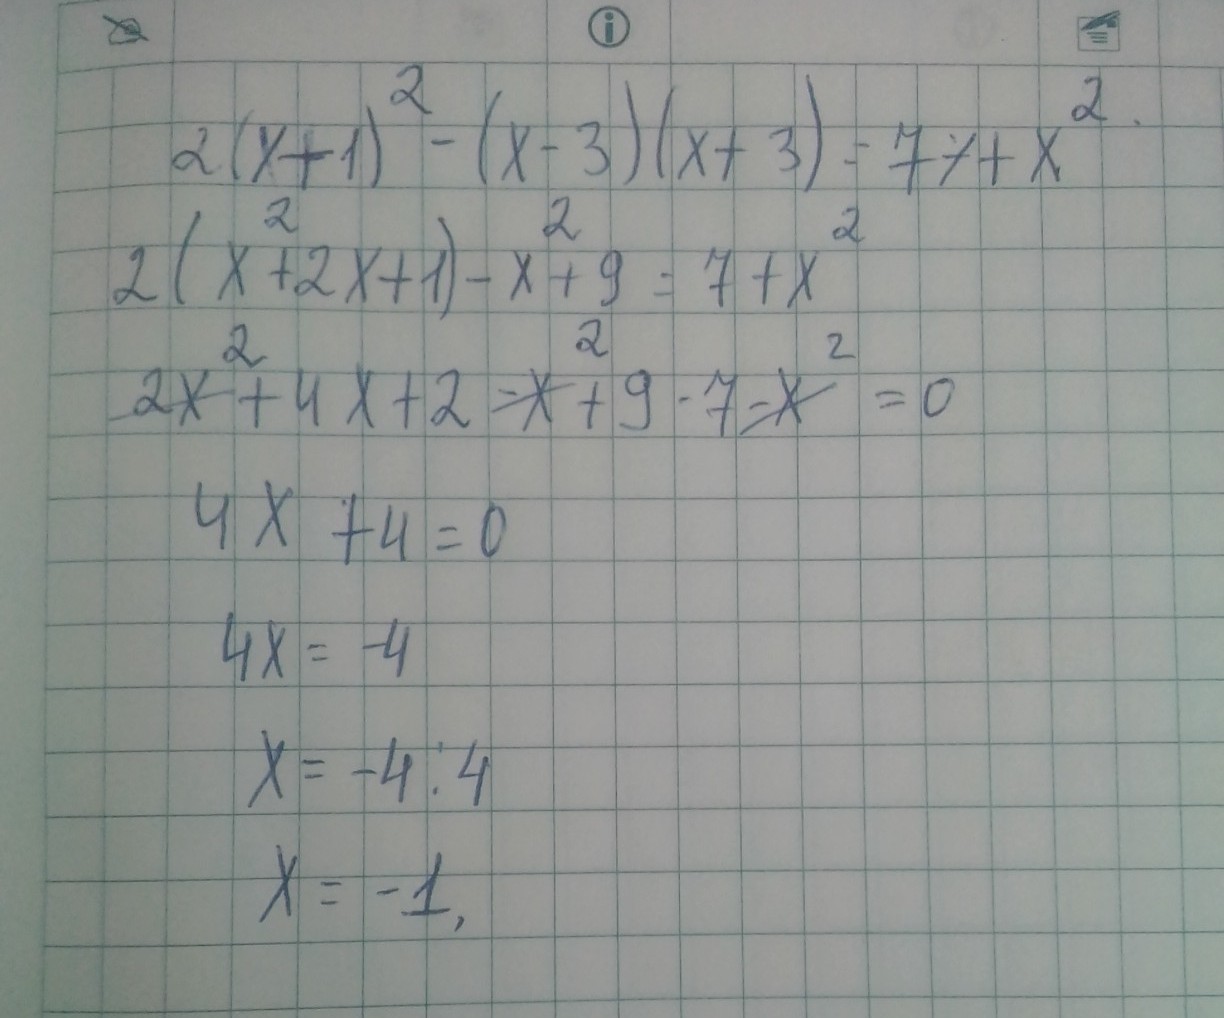 2(x+1)² - (x-3)(x+3) = 7+x².
2(x²+2x+1)-x²+9 = 7+x²
2x²+4x+2-x²+9-7-x² = 0
4x +4=0
4x = -4
x = -4:4
x = -1,